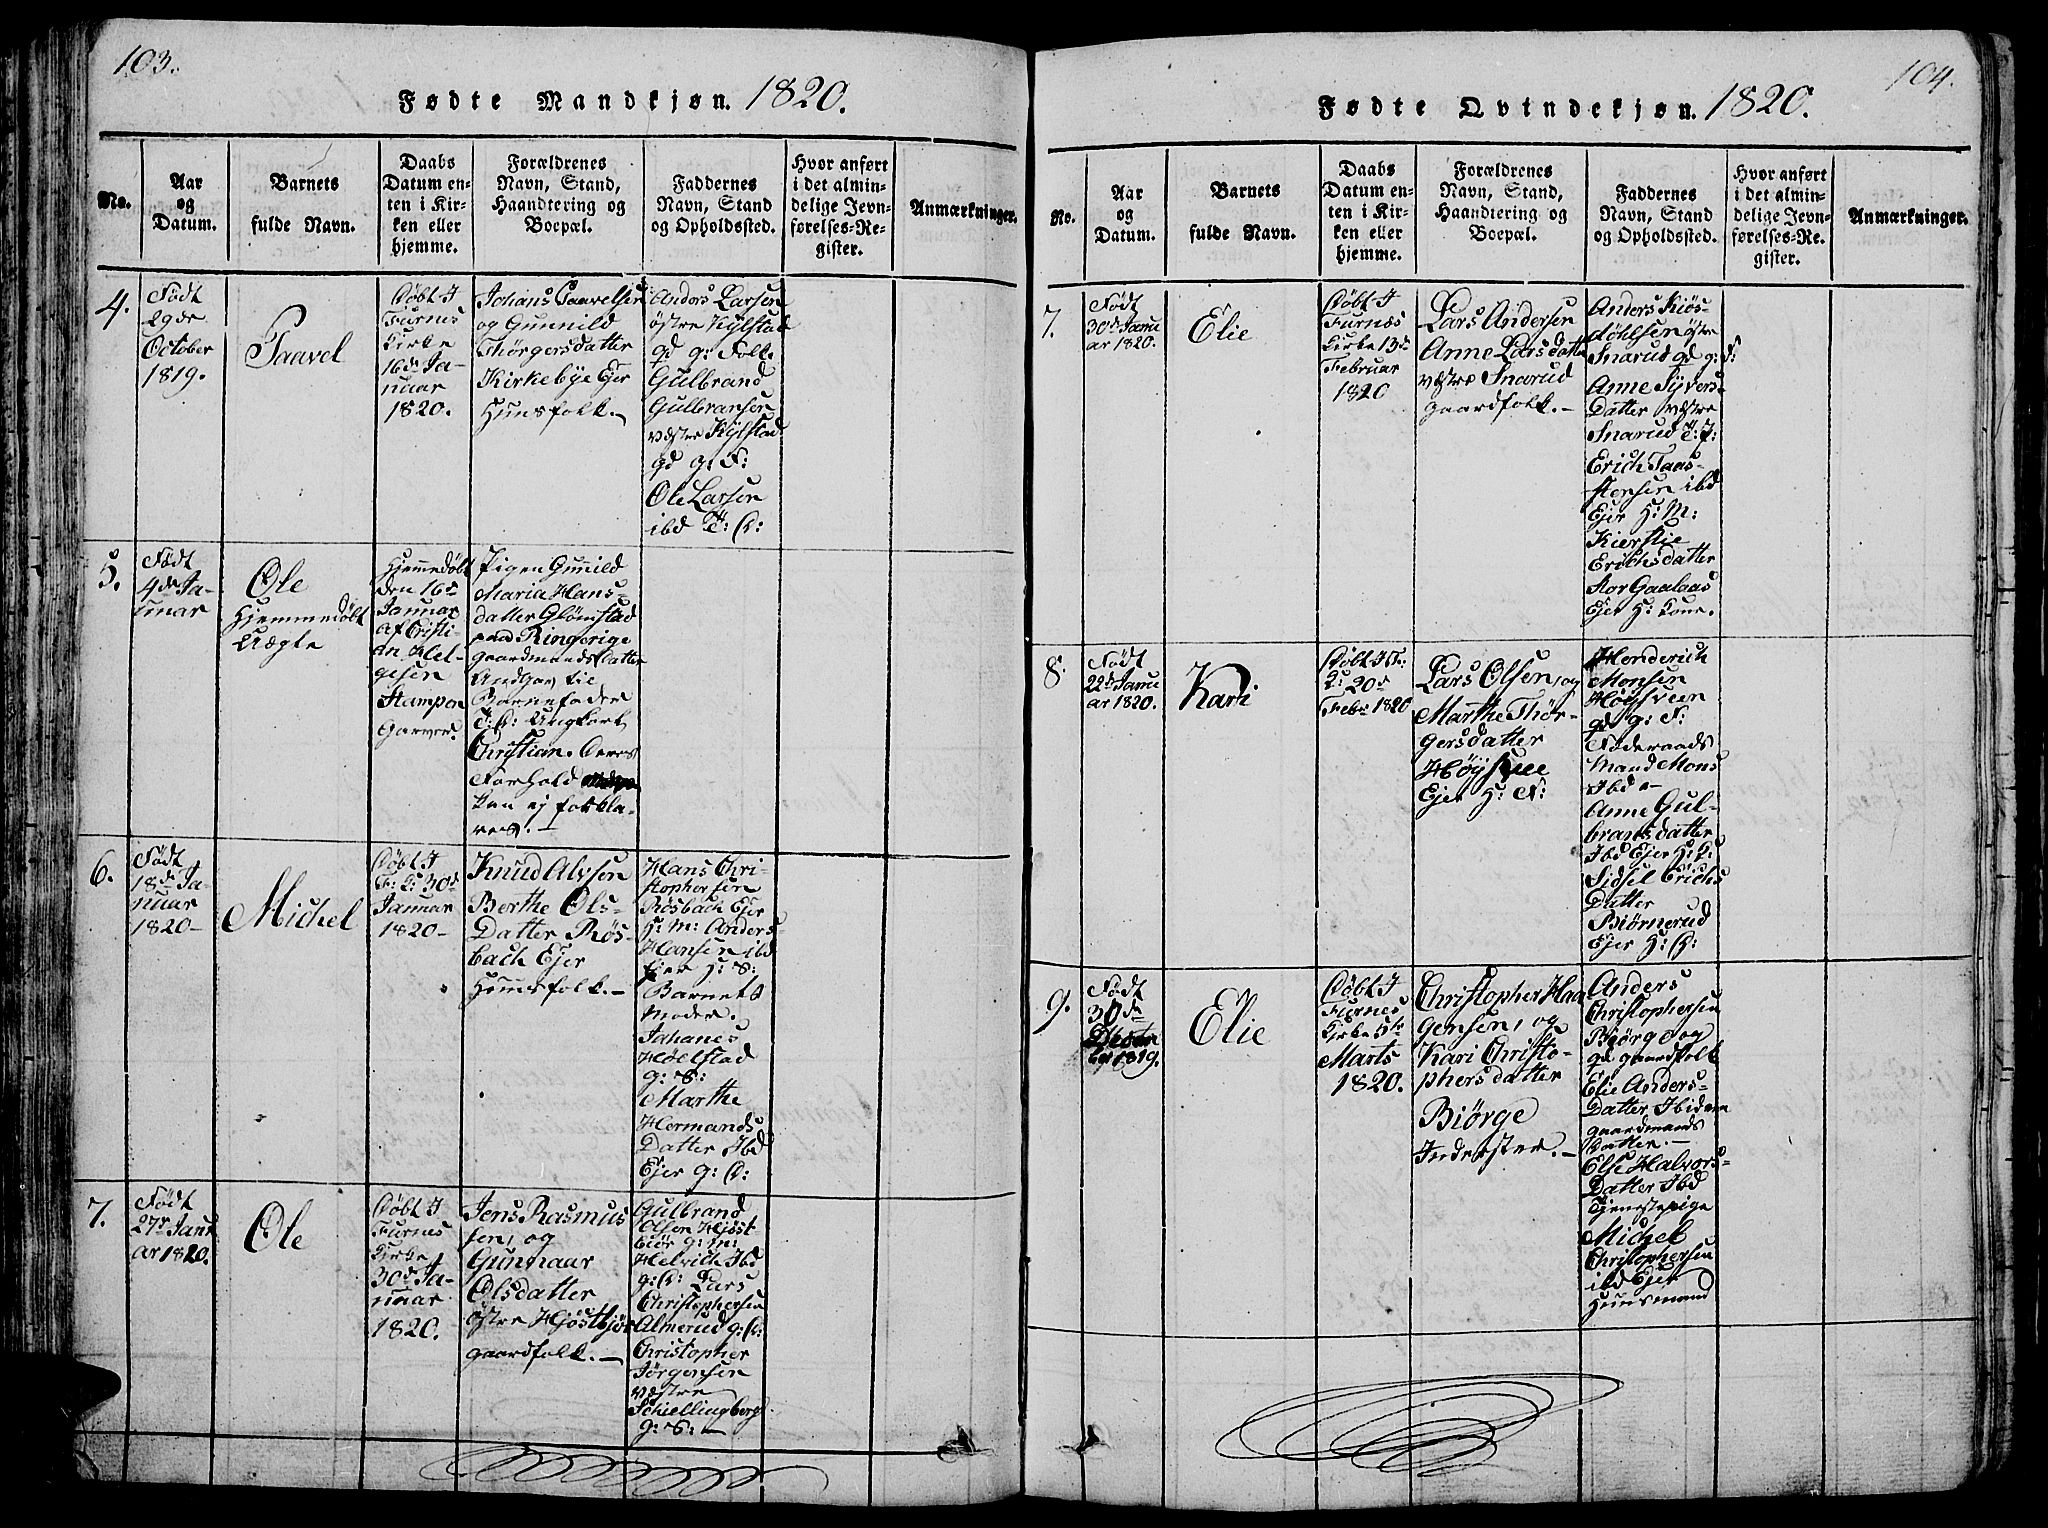 103.
Fødte Mandkjøn. 1820.
No.
Aar
og
Datum.
Barnets
fulde Navn.
Daabs
Datum en-
ten i Kir-
ken eller
hjemme.
Forældrenes
Navn, Stand,
Haandtering og
Boepæl.
Faddernes
Navn, Stand
og Opholdssted.
Hvor anført
i det almin-
delige Jevn-
førelses-Re-
gister.
Anmærkninger.
4.
Født
29de
October
1819.
Paavel
Døbt I
Furnes
Kirke
16de Ja-
nuar
1820.
Johans Paavelsen
og Gunnild
Thørgersdatter
Kirkebye Ejer
Huusfolk.-
Anders Larsen
østre Kylstad
gd g: Folk
Gulbrand
Gulbransen
væstre Kylstad
gd g: F:
Ole Larsen
ibd
5.
Født
4de Ja-
nuar
Ole
Hjemmedøbt
Uægte
Hjemmedøbt
den 16de
Januar
af Cristi-
an Hel-
gesen
Stampen
Garver.
Pigen Gunild
Maria Hans-
datter Glømstad
paa Ringerige
gaardmandsdatter
Undgav til
Barnefader
Ungkarl
Christian. Deres
Forhold
kan ej forkla-
res.-
6.
Født
18de Ja-
nuar
1820-
Michel
Døbt I
F: K: 30de
Januar
1820-
Knud Alvsen
Berthe Ols-
Datter Røs-
bach Ejer
Huusfolk.-
Hans Chri-
stophersen
Røsbach Ejer
H: M: Anders
Hansen ibd
Ejer H: S:
Barnets
Moder.
Johanes
Høelstad
g: S:
Marthe
Hermands
Datter Ibd
Ejer g: D:
7.
Født
27de Janu
ar 1820.
Ole
Døbt I
Furnes
Kirke
30de Ja-
nuar
1820.
Jens Rasmus
sen, og
Gunnaar
Olsdatter
østre Hjøstbjør
gaardfolk.-
Gulbrand
Olsen Hjøst
biør g: m:
Helvich Ibd
g: D: Lars
Christophersen
Almerud g: D:
Christopher
Jørgensen
væstre
Schiellingberg
g: S: -
104.
Fødte Qvindekjøn. 1820.
No.
Aar
og
Datum.
Barnets
fulde Navn.
Daabs
Datum en-
ten i Kir-
ken eller
hjemme.
Forældrenes
Navn, Stand,
Haandtering og
Boepæl.
Faddernes
Navn, Stand
og Opholdssted.
Hvor anført
i det almin-
delige Jevn-
førelses-Re-
gister.
Anmærkninger.
7.
Født
30de Janu
ar 1820.
Elie
Døbt I
Furnæs
Kirke 13de
Februar
1820
Lars Andersen
Anne Larsdatter
væstre Snarud
gaardfolk.-
Anders Kiøs-
døhlsen østre
Snarud gd g: F:
Anne Syvers-
Datter væstre
Snarud
Erich Taas-
stensen ibd
Ejer H: M:
Kierstie
Erichsdatter
Stor Gaalaas
Ejer H: Kone.
8.
Født
22de Janu
ar 1820.
Kari
Døbt I F:
K: 20de
Febr 1820
Lars Olsen, og
Marthe Thør-
gersdatter
Høysvee
Ejer H: F:
Henderich
Monsen
Høysveen
gd g: F:
Føderaads
Mand Mons
Ibd -
Anne Gul-
bransdatter
Ibd Ejer H: K:
Sidsel Erichs
Datter
Biørnerud
Ejer H: D:
9.
Født
30de
1819.
Elie
Døbt I
Furnes
Kirke 5te
Marts
1820.
Christopher Haa
gensen, og
Kari Christo-
phersdatter
Biørge
Inderster.-
Anders
Christophersen
Biørge og
gd gaardfolk
Elie Anders-
Datter Ibidem
gaardmands
Datter.-
Else Halvors-
Datter Ibd
Tjenestepige
Michel
Christophersen
ibd Ejer
Huusmand